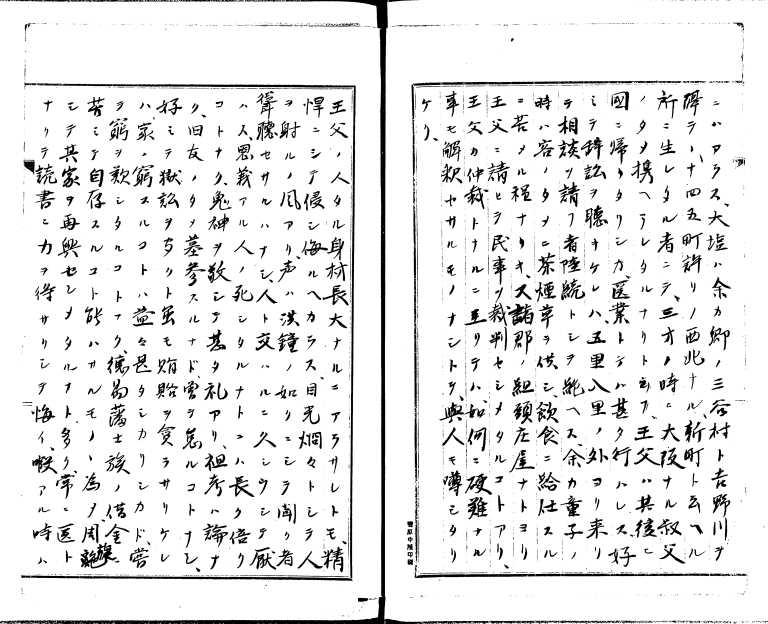 ニハアラス、大塩ハ余カ郷ノ三谷村ト吉野川ヲ
隔テ、十四五町許リノ西北ナル、新町ト云ヘル
所ニ生レタル者ニテ、三才ノ時ニ大阪ナル叔父
ノタメ携ヘラレタルナリト云フ、王父ハ其後ニ
国ニ帰リタリシカ、医業トテハ甚タ行ハレス、好
ミテ辞訟ヲ聴キケレハ、五里八里ノ外ヨリ来リ
テ相談ヲ請フ者陸続トシテ絶ヘス、余カ童子ノ
時ハ客ノタメニ茶煙草ヲ供シ飲食ニ給仕スル
ニ苦メル程ナリキ、又諸郡ノ組頭庄屋ナトヨリ
王父ニ請ヒテ民事ヲ裁判セシメタルコトアリ、
王父カ仲裁トナルニ至リテハ、如何ニ硬難ナル
事モ解釈セサルモノナシトテ、世人モ噂シタリ
ケリ、
王父ノ人タル身材長大ナルニアラサレトモ、精
悍ニシテ侵シ侮ルヘカラス、目光烱々トシテ人
ヲ射ルノ風アリ、声ハ洪鐘ノ如クニシテ聞ク者
聳聴セサルハナシ、人ト交ハルニ久シウシテ厭
ハス、恩義アル人ノ死シタルナトニハ長ク倍リ
コトナク、鬼神ヲ敬シテ甚タ礼アリ、祖考ハ論ナ
ク、旧友ノタメ墓参スルナド、曽テ怠ルコトナシ、
好ミテ獄訟ヲ与リト虽モ賄賂ヲ貪ラサリケレ
ハ、家ノ窮スルコトハ益々甚タシカリシカド、曽
ヲ窮ヲ歎シタルコトナク、徳島藩士族ノ借金ニ
苦ミテ自存スルコト能ハサルモノヽ為ヲ、周旋
シテ其家ヲ再興セシメタルナト多ク、常ニ医ト
ナリテ読書ニ力ヲ得サリシヲ悔イ、暇アル時ハ